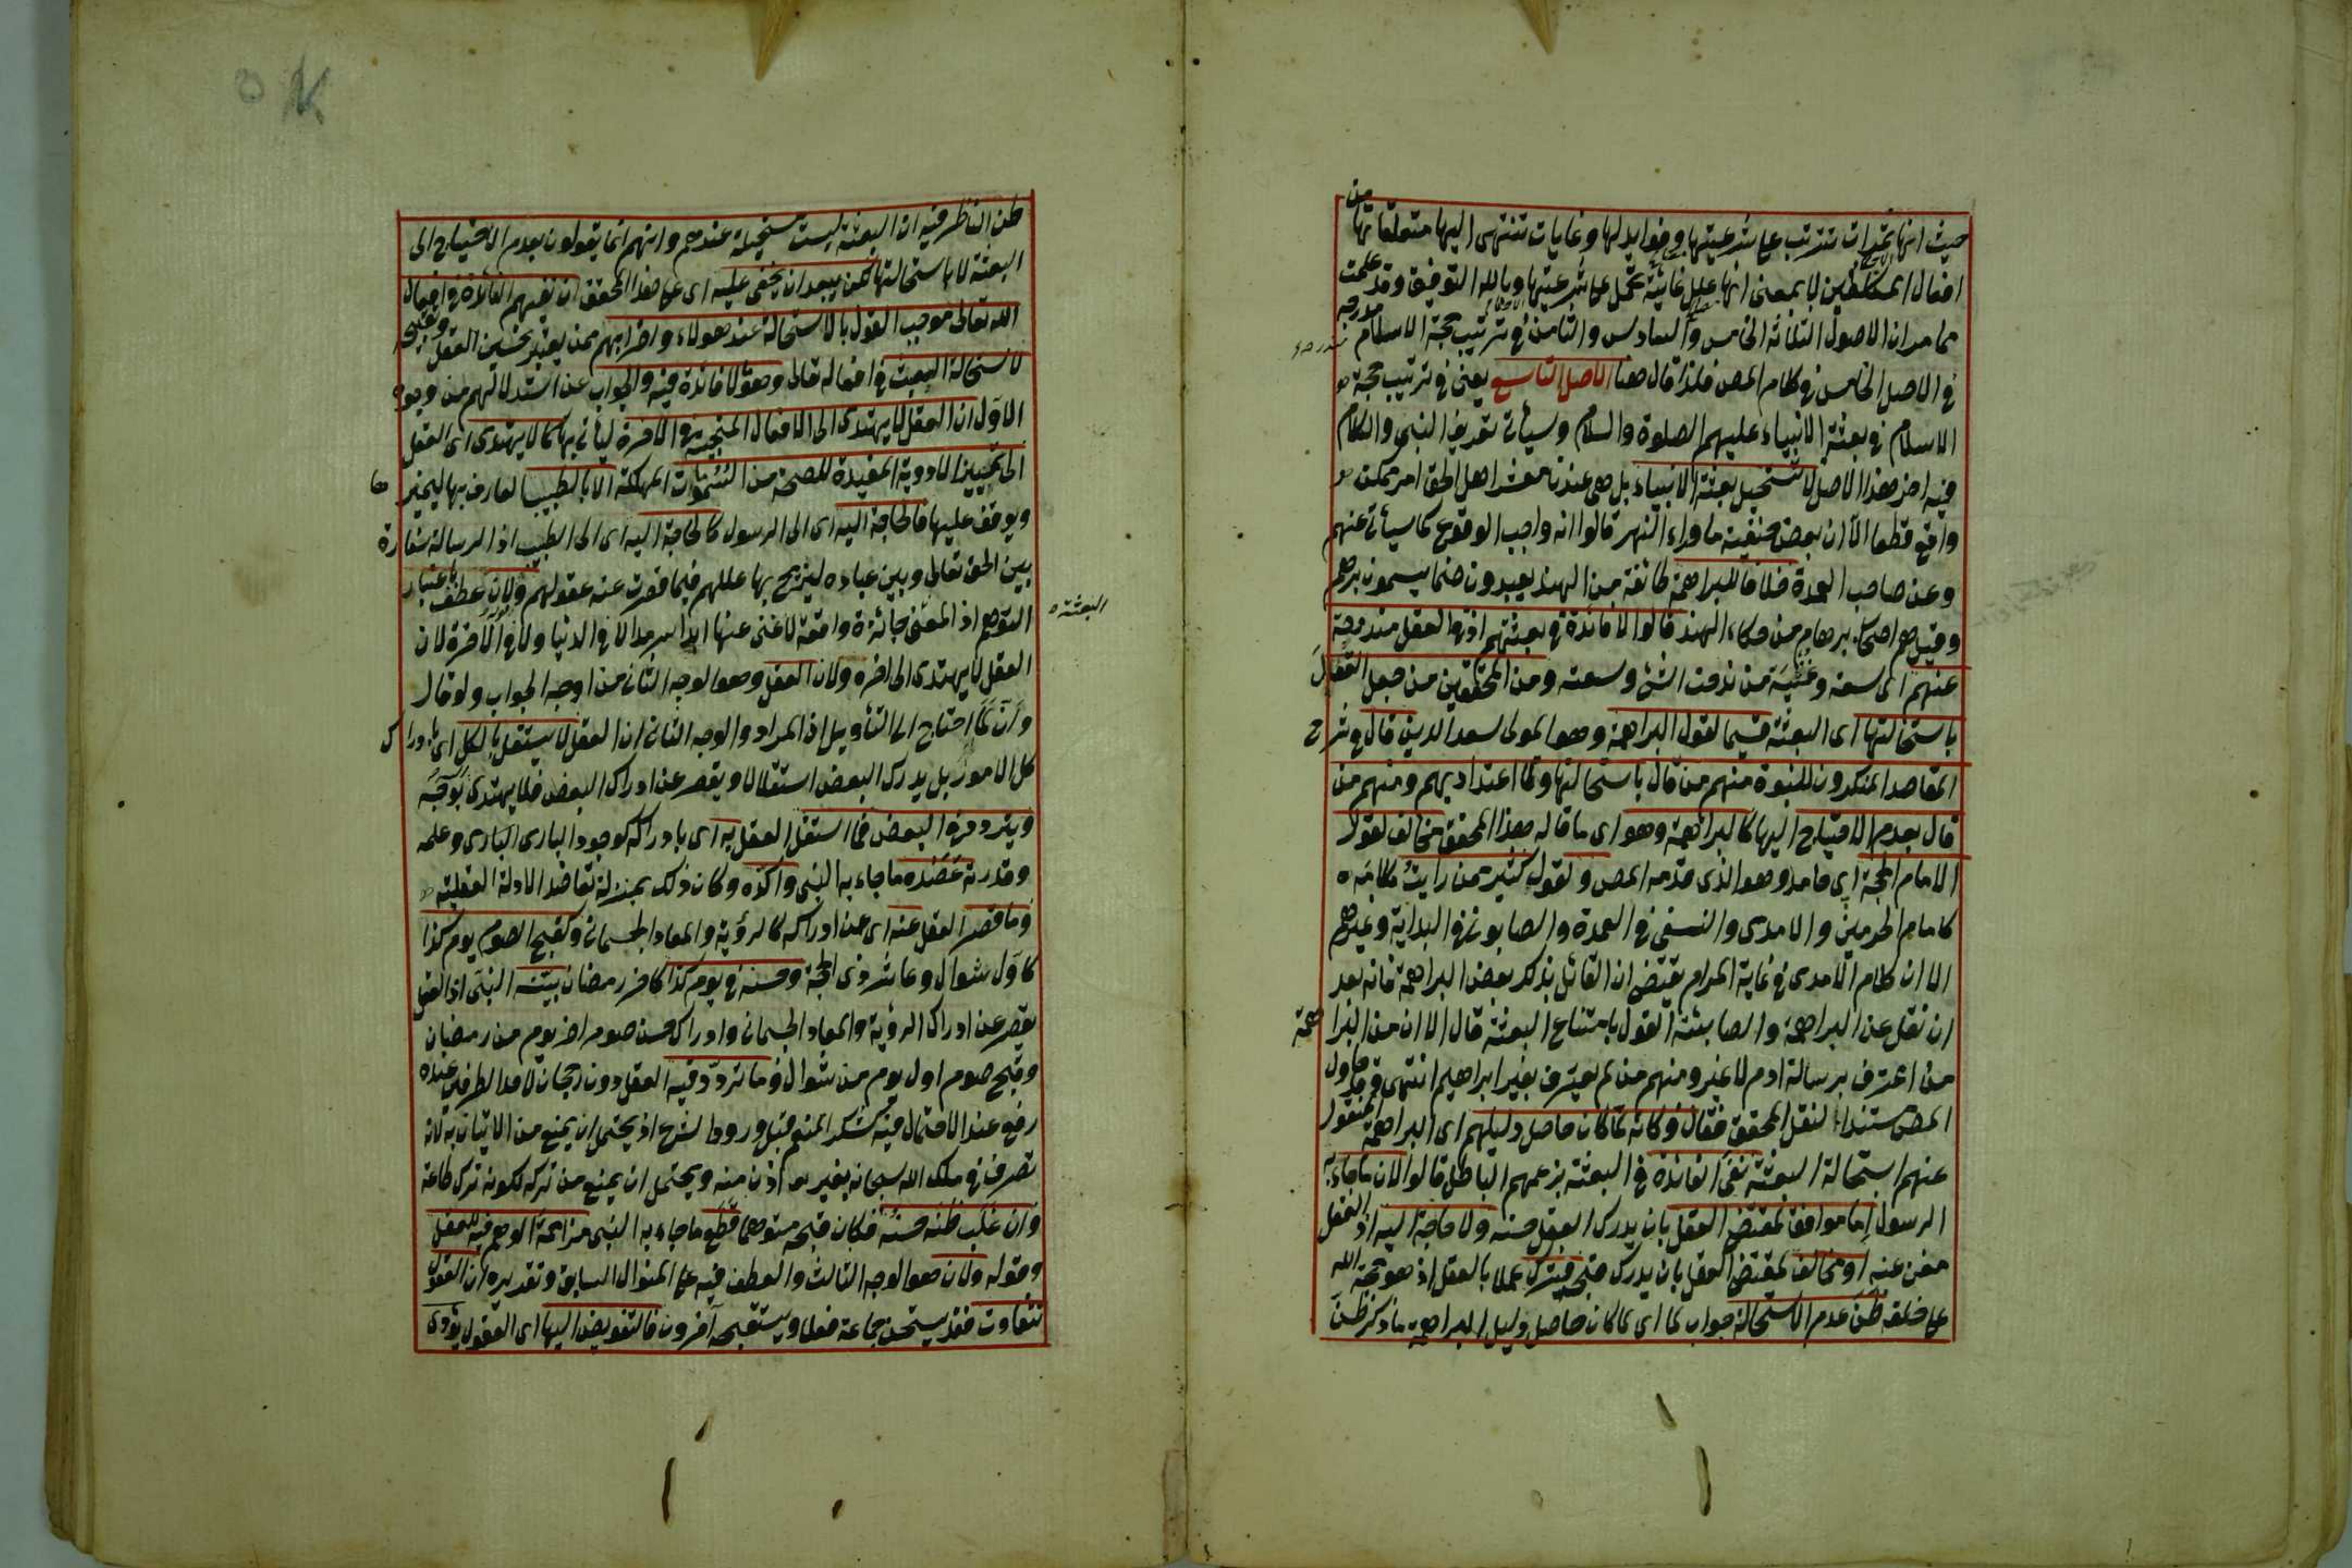 حيث انها ثمرات تترتب على شرعيتها وفوايد لها وغايات تنتهى اليها متعلقاتها من
افعال المكلفين لا بمعنى انها علل غائية تحمل على شرعيتها وبالله التوفيق وقد علمت
مما مر ان الاصول الثلثة الخامس والسادس والثامن فى ترتيب حجة الاسلام مندرجة
فى الاصل الخامس فى كلام المص فلذا قال هنا الاصل التاسع يعنى فى ترتيب حجة
الاسلام فى بعثة الانبياء عليهم الصلوة والسلام وسيأتى تعريف النبى والكلام
فيه اخر هذا الاصل لا تستحيل بعثة الانبياء بل هى عندنا معشر اهل الحق امر ممكن
واقع قطعا الا ان بعض حنفية ما وراء النهر قالوا انه واجب الوقوع كما سيأتى عنهم
وعن صاحب العمدة خلافا للبراهمة طائفة من الهند يعبدون صنما يسمونه برهم
وقيل هم اصحاب برهام من حكماء الهند قالوا لا فائدة فى بعثتهم اذ فى العقل مندوحة
عنهم اى سعة وغنية من ندحت الشئ وسعته ومن المحققين من جعل القول
باستحالتها اى البعثة قسيما لقول البراهمة وهو المولى سعد الدين قال فى شرح
المقاصد المنكرون للنبوة منهم من قال باستحالتها ولا اعتداد بهم ومنهم من
قال بعدم الاحتياج اليها كالبراهمة وهو اى ما قاله هذا المحقق مخالف لقول
الامام الحجة ابى حامد وهو الذى قدمه المص ولقول كثير ممن رأيت كلامه
كامام الحرمين والامدى والنسفى فى العمدة والصابونى فى البداية وغيرهم
الا ان كلام الامدى فى غاية المرام يقتضى ان القائل بذلك بعض البراهمة فانه بعد
ان نقل عن البراهمة والصابئة القول بامتناع البعثة قال الا ان من البراهمة
من اعترف برسالة ادم لا غير ومنهم من لم يعترف بغير ابراهيم انتهى وقد حاول
المص مستندا لنقل المحقق فقال وكانه لما كان حاصل دليلهم اى البراهمة المنقول
عنهم استحالة البعثة نفى الفائدة فى البعثة بزعمهم الباطل قالوا لان ما جاء به
الرسول اما موافق لمقتضى العقل بان يدرك العقل حسنه ولا حاجة اليه اذ العقل
مغن عنه او مخالف لمقتضى العقل بان يدرك قبحه فيترك عملا بالعقل اذ هو حجة الله
على خلقه ظن عدم الاستحالة جواب لما اى لما كان حاصل دليل البراهمة ما ذكر ظن
ظن الناظر فيه ان البعثة ليست مستحيلة عندهم وانهم انما يقولون بعدم الاحتياج الى
البعثة لا باستحالتها لكن يبعد ان يخفى عليه اى على هذا المحقق ان نفيهم الفائدة فى افعال
الله تعالى موجب القول بالاستحالة عند هؤلاء واضرابهم ممن يعتبر تحسين العقل وتقبيحه
لاستحالة العبث فى افعاله تعالى وهو ما لا فائدة فيه والجواب عن استدلالهم من وجوه
الاول ان العقل لا يهتدى الى الافعال المنجية فى الاخرة ليأتى بها كما لا يهتدى اى العقل
الى تمييز الادوية المفيدة للصحة من السمومات المهلكة الا بالطبيب العارف بها ليميزها
ويوقف عليها فالحاجة اليه اى الى الرسول كالحاجة اليه اى الى الطبيب اذ الرسالة سفارة
بين الحق تعالى وبين عباده ليزيح بها عللهم فيما قصرت عنه عقولهم ولان عطف باعتبار
التوهم اذ المعنى جائزة واقعة لا غنى عنها ابدا سرمدا لا فى الدنيا ولا فى الاخرة لان
البعثة
العقل لا يهتدى الى اخره ولان العقل وهو الوجه الثانى من اوجه الجواب ولو قال
وان لما احتاج الى التأويل اذ المراد والوجه الثانى ان العقل لا يستقل بالكل اى بادراك
كل الامور بل يدرك البعض استقلالا ويقصر عن ادراك البعض فلا يهتدى بوجه
ويتردد فى البعض فما استقل العقل به اى بادراكه كوجود البارى البارى وعلمه
وقدرته عضده ما جاء به النبى واكده وكان ذلك بمنزلة تعاضد الادلة العقلية
وما قصر العقل عنه اى عن ادراكه كالرؤية والمعاد الجسمانى وكقبح الصوم يوم كذا
كاول شوال وعاشر ذى الحجة وحسنه فى يوم كذا كاخر رمضان بيّنه النبى اذ العقل
يقصر عن ادراك الرؤية والمعاد الجسمانى وادراك حسن صوم اخر يوم من رمضان
وقبح صوم اول يوم من شوال وما تردد فيه العقل دون رجحان لاحد الطرفين عنده
رفع عنه الاحتمال فيه كشكر المنعم قبل ورود الشرع اذ يحتمل ان يمنع من الاتيان به لانه
تصرف فى ملك الله سبحانه بغير اذن منه ويحتمل ان يمنع من تركه لكونه ترك طاعة
وان غلب ظنه حسنه فكان قبحه متوهما قطع ما جاء به النبى مزاحمة الوهم فيه للعقل
وقوله ولان هو الوجه الثالث والعطف فيه على المنوال السابق وتقديره ان العقول
تتفاوت فقد يستحسن جماعة فعلا ويستقبحه آخرون فالتفويض اليها اى العقول يؤدى